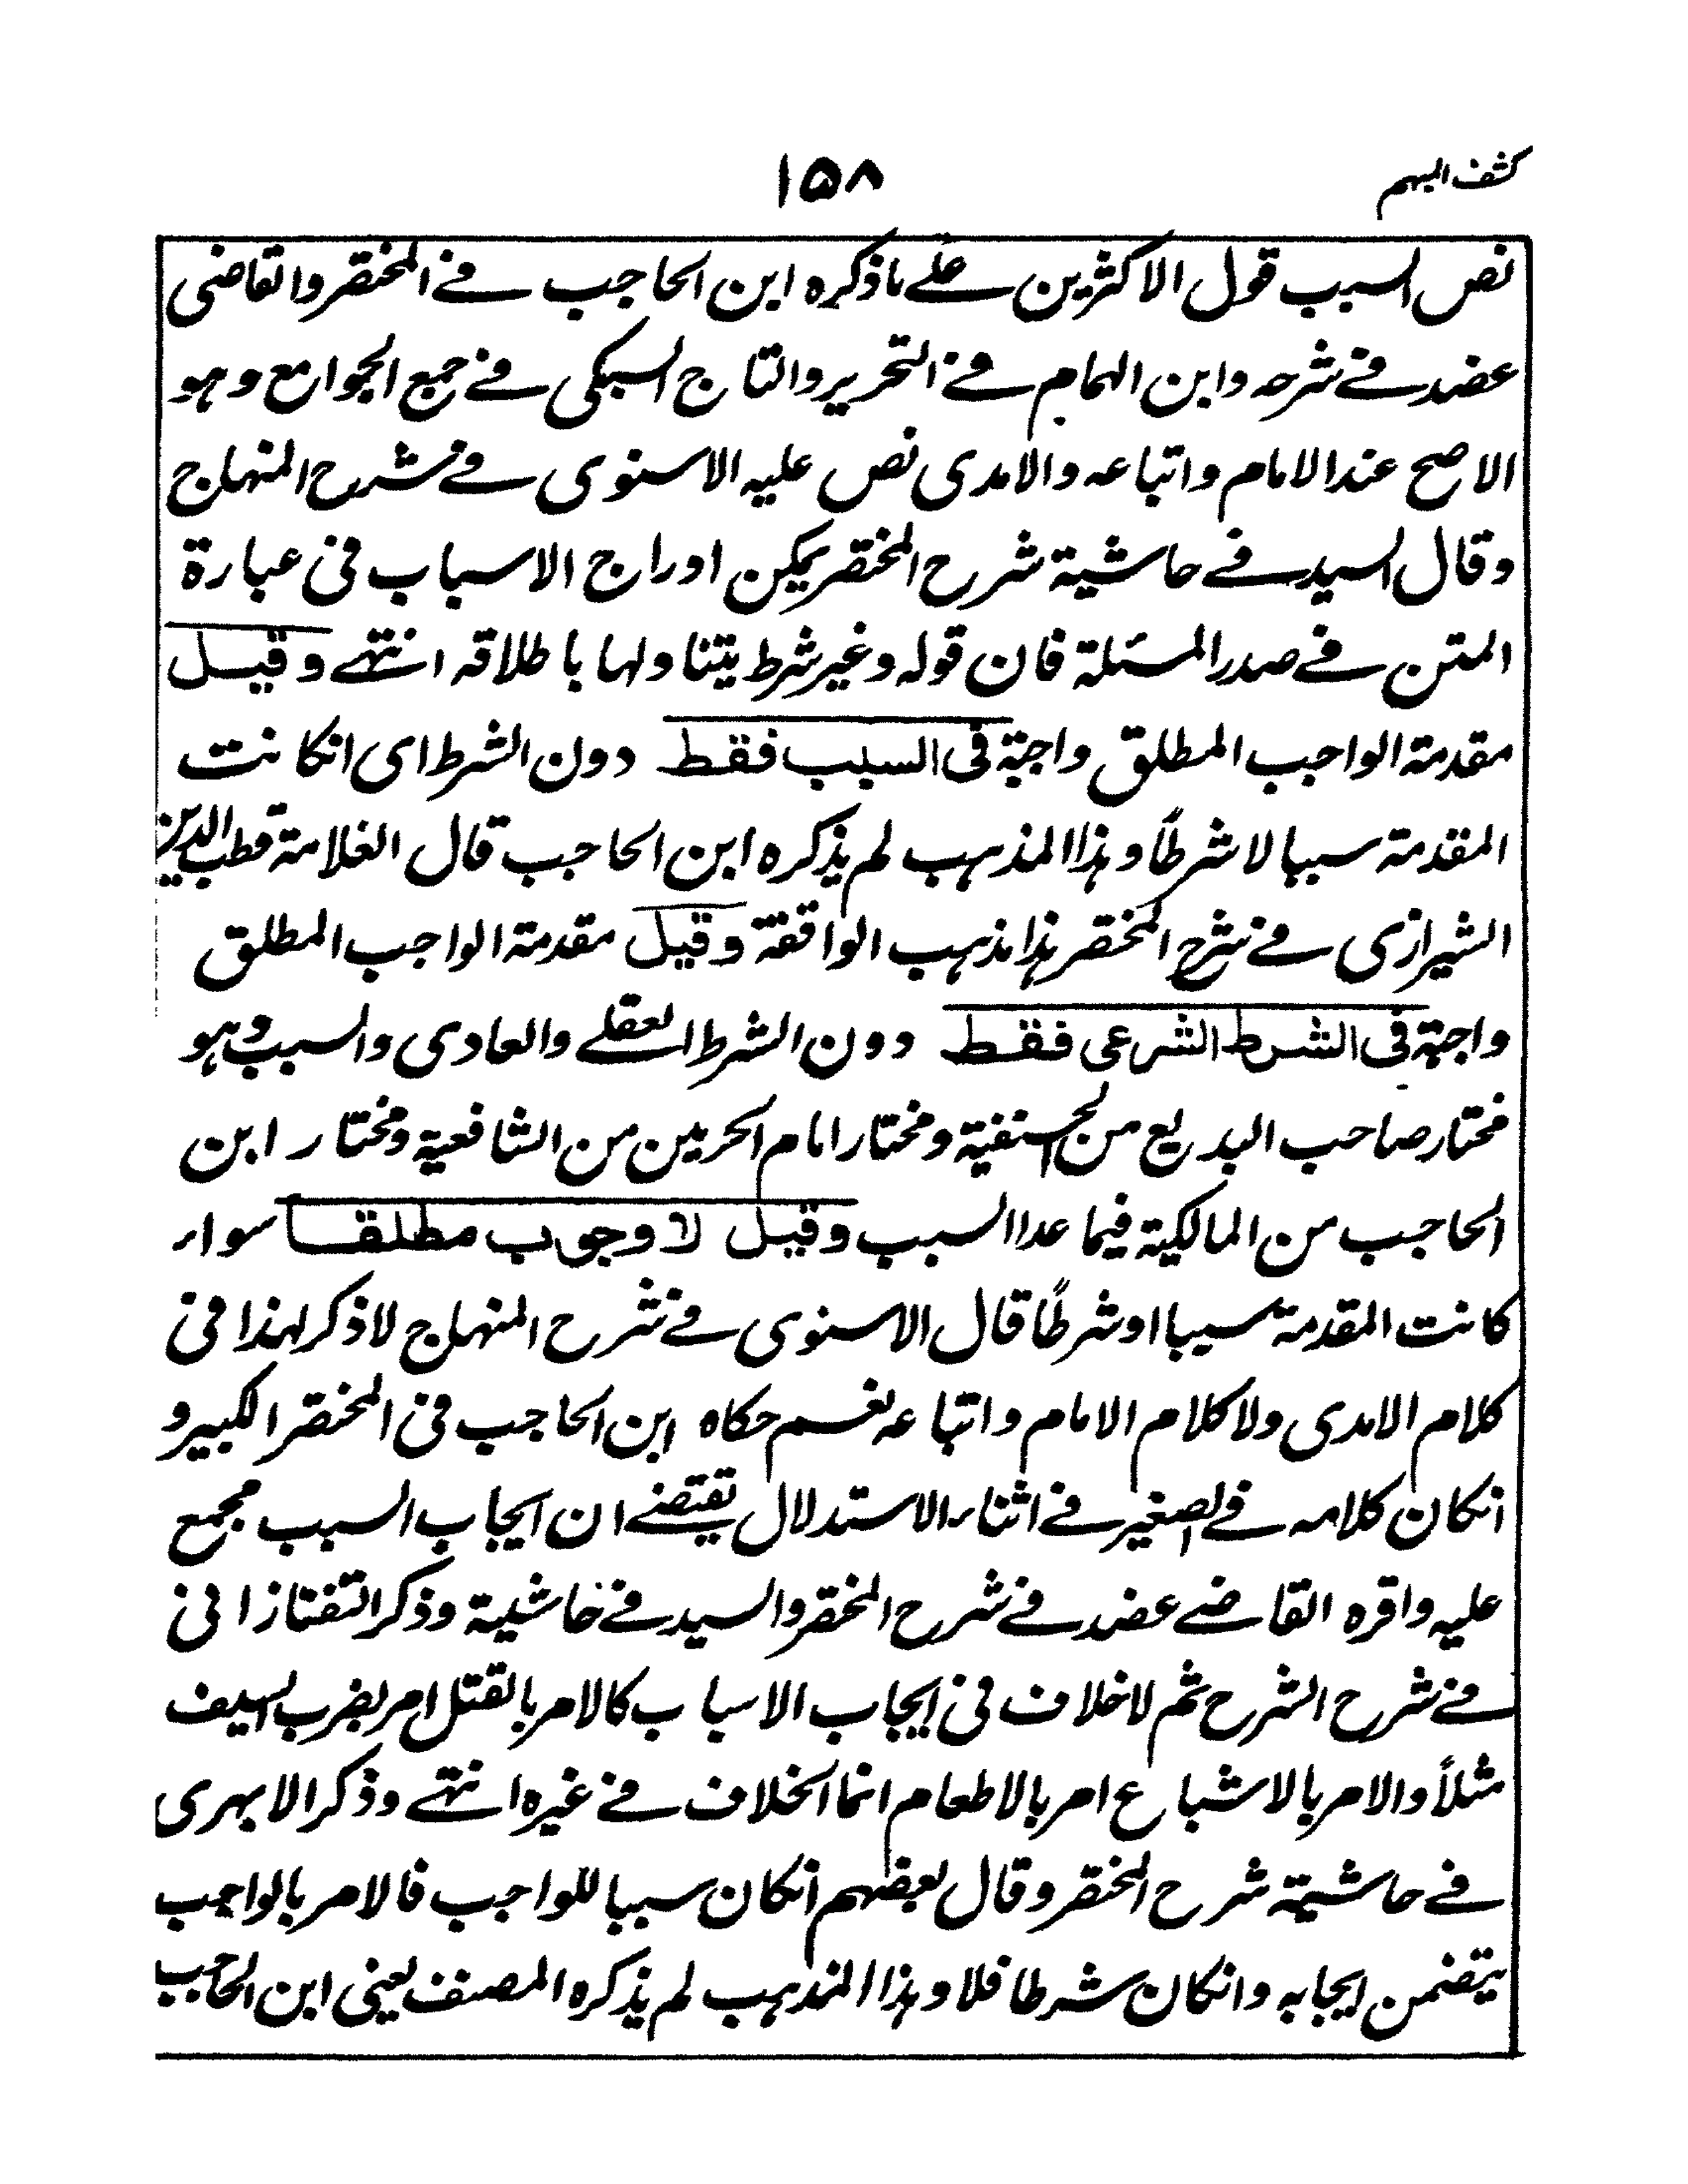 كشف المبهم
١٥٨
نص السبب قول الاكثرين على ما ذكره ابن الحاجب في المختصر والقاضي
عضد في شرحه وابن الهمام في التحرير والتاج السبكي في جمع الجوامع وهو
الاصح عند الامام واتباعه والامدي نص عليه الاسنوي في شرح المنهاج
وقال السيد في حاشية شرح المختصر يمكن اوراج الاسباب في عبارة
المتن في صدر المسئلة فان قوله وغير شرط يتناولها باطلاقه انتهى وقيل
مقدمة الواجب المطلق واجبة في السبب فقط دون الشرط اى انكانت
المقدمة سببا لا شرطًا وهذا المذهب لم يذكره ابن الحاجب قال العلامة قطب الدين
الشيرازي في شرح المختصر هذا مذهب الواقفة وقيل مقدمة الواجب المطلق
واجبة في الشرط الشرعي فقط دون الشرط العقلي والعادي والسبب وهو
مختار صاحب البديع من الحنفية ومختار امام الحرمين من الشافعية ومختار ابن
الحاجب من المالكية فيما عدا السبب وقيل لا وجوب مطلقا سواء
كانت المقدمة سببا او شرطًا قال الاسنوي في شرح المنهاج لا ذكر لهذا في
كلام الامدي ولا كلام الامام واتباعه نعم حكاه ابن الحاجب في المختصر الكبير و
انكان كلامه في الصغير في اثناء الاستدلال يقتضي ان ايجاب السبب مجمع
عليه واقره القاضي عضد في شرح المختصر والسيد في حاشية وذكر التفتازا في
في شرح الشرح ثم لا خلاف في ايجاب الاسباب كالامر بالقتل امر بضرب السيف
مثلًا والامر بالاشباع امر بالاطعام انما الخلاف في غيره انتهى وذكر الابهرى
في حاشيته شرح المختصر وقال بعضهم انكان سببا للواجب فالامر بالواجب
يتضمن ايجابه وانكان شرطا فلا وهذا المذهب لم يذكره المصنف يعني ابن الحاجب